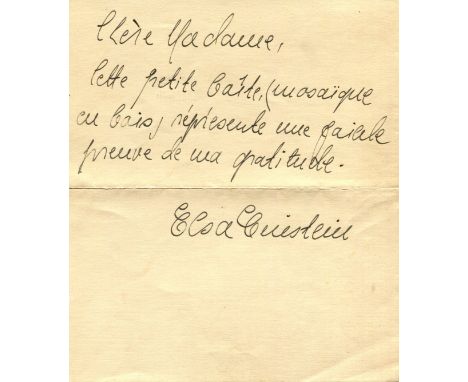 Chère Madame,
Cette petite boîte, (mosaïque
en bois) réprésente une faible
preuve de ma gratitude.
Elsa Einstein